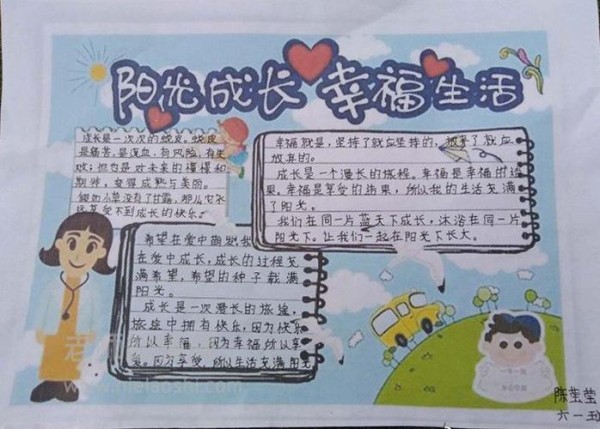 阳光成长 幸福生活
成长是一次次的蜕变。蜕变
是痛苦、是流血、有风险、有失
败;但也是对未来的憧憬和
期许,变得成熟与美丽。
假如小草没有了甘露,那么它永
远享受不到成长的快乐。
幸福就是,坚持了就应坚持的,放弃了就应
放弃的。
成长是一个漫长的旅程。幸福是幸福的结
果。幸福是享受的结果,所以我的生活充满
了阳光。
我们在同一片蓝天下成长,沐浴在同一片
阳光下。让我们一起在阳光下长大。
希望在爱中萌发我
在爱中成长,成长的过程充
满希望,希望的种子载满
阳光。
成长是一次漫长的旅途,
旅途中拥有快乐,因为快乐
所以幸福,因为幸福所以享
受。因为享受,所以生活充满阳光
陈莹莹
六一班